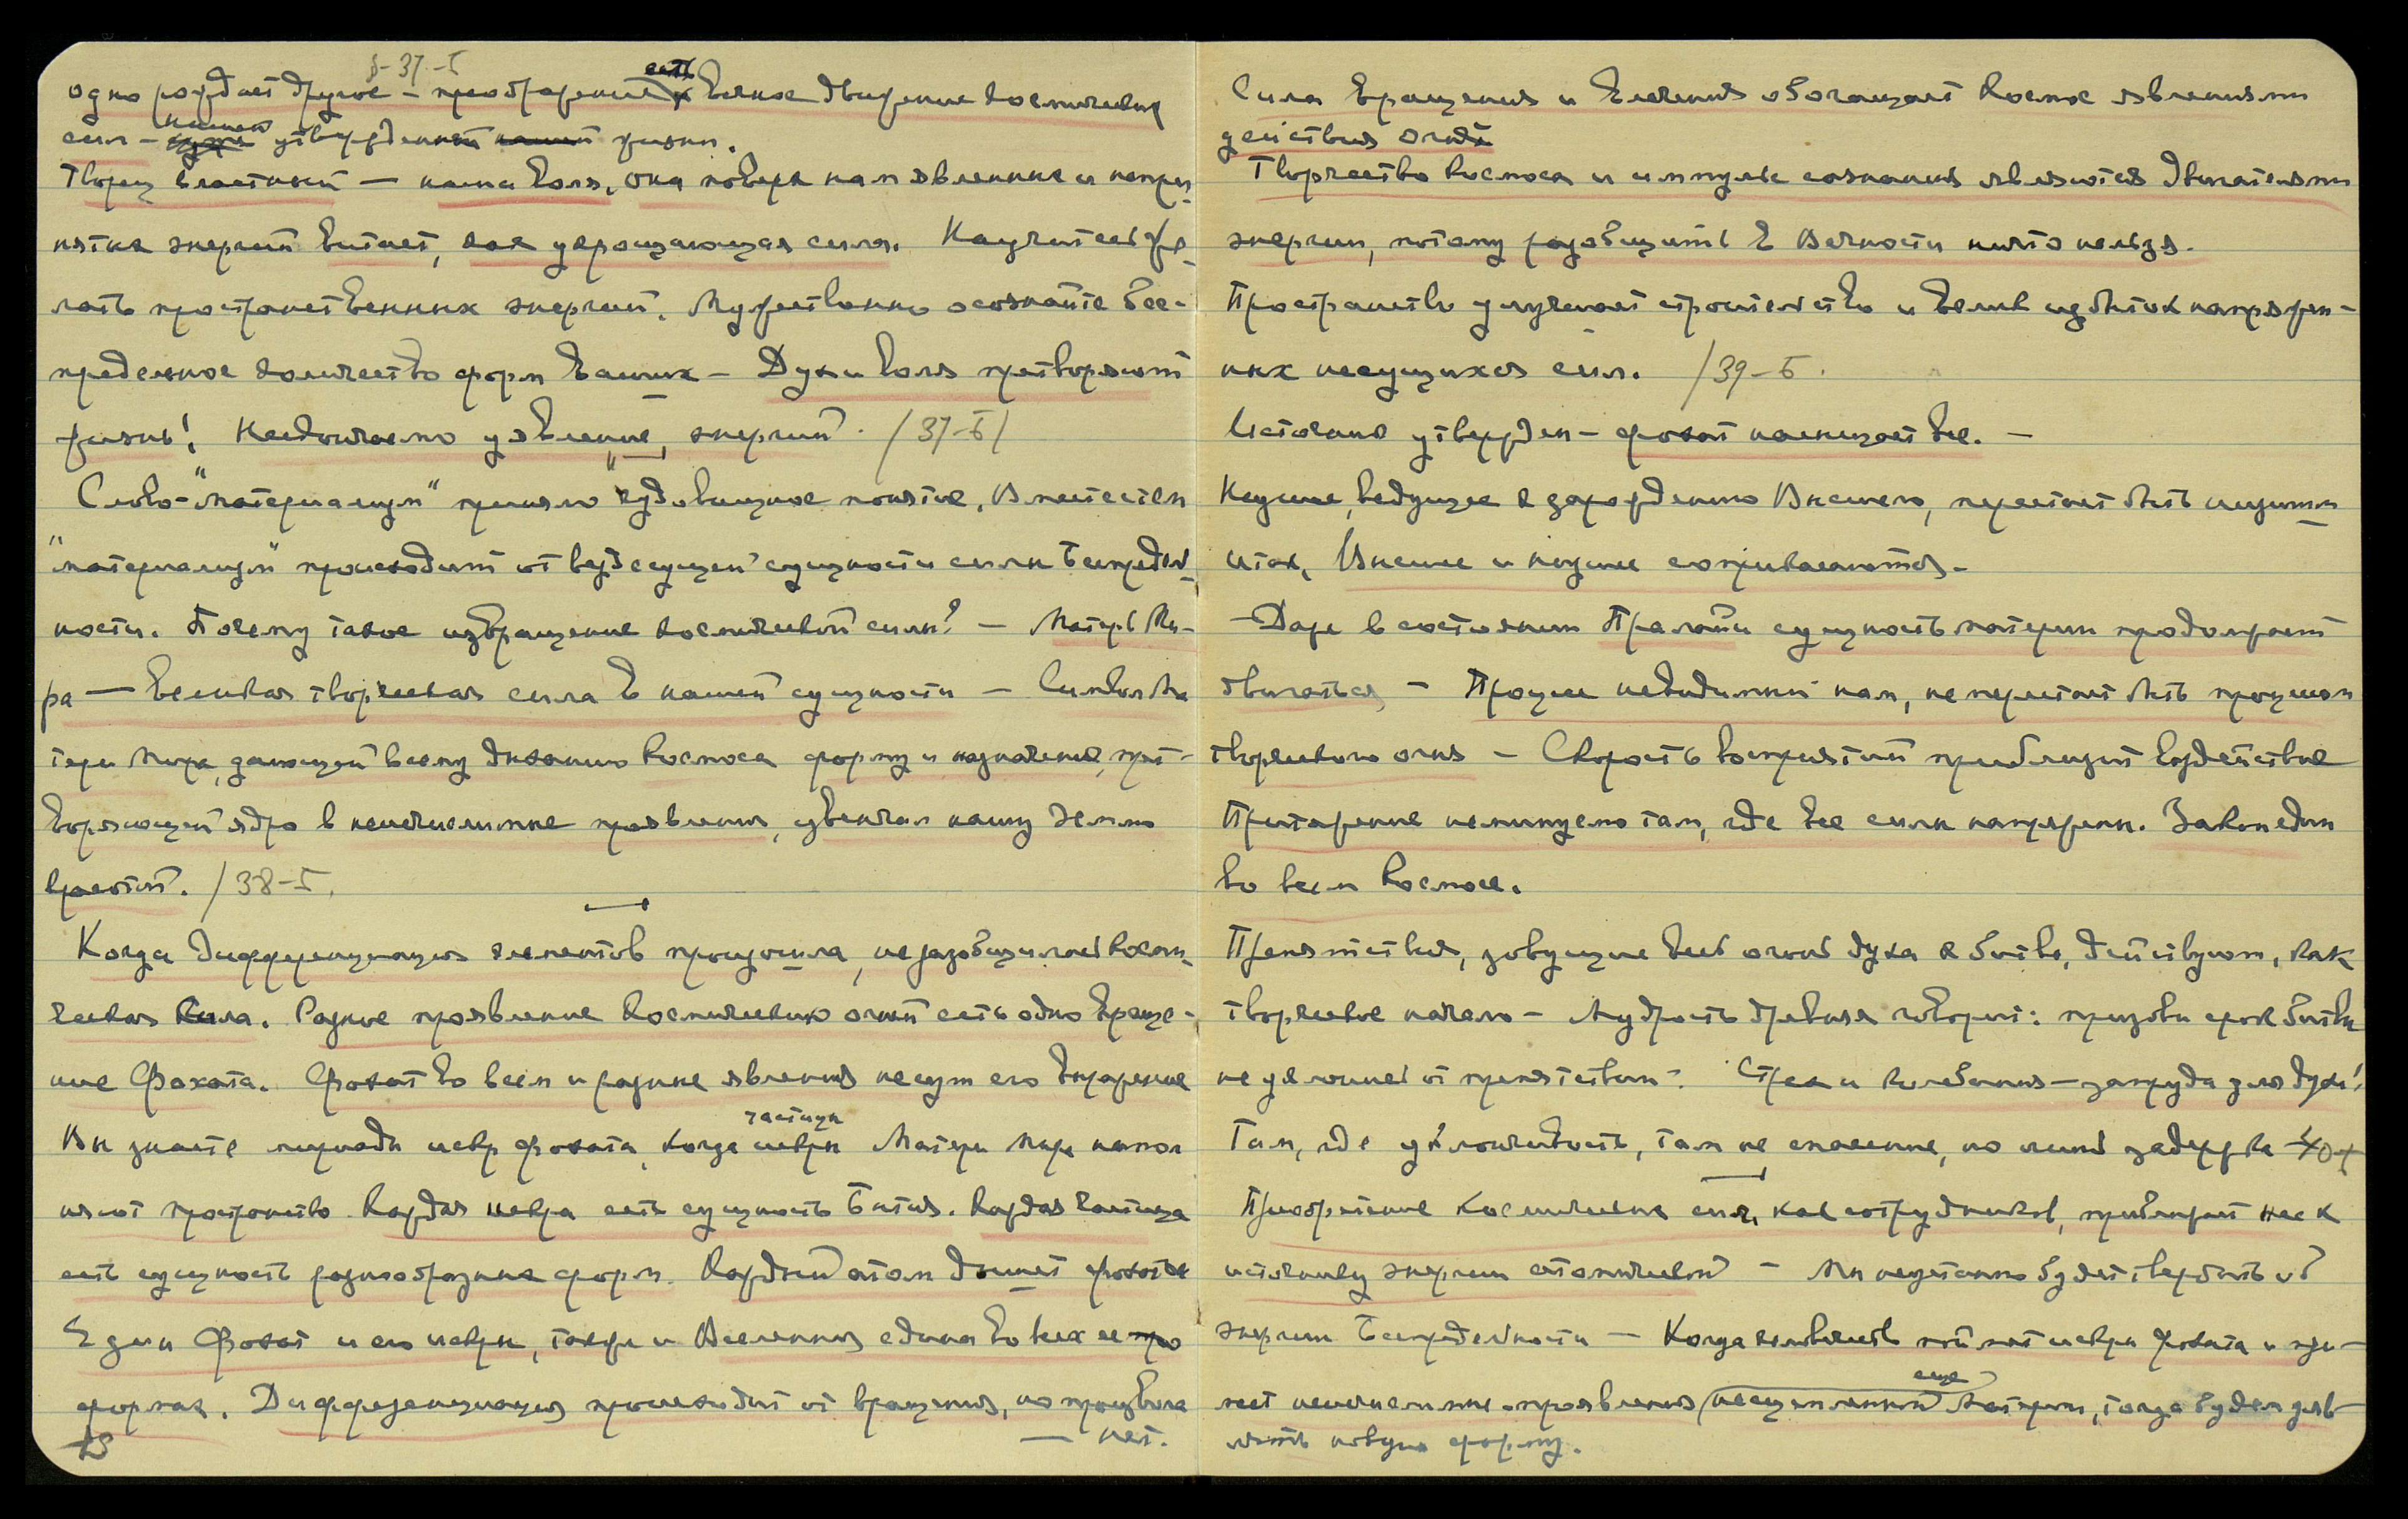 8-37-Б
одно рождает другое – преображение есть вечное движение космических
сил – нашей утвержденной жизни.
Творец властный – наша воля, она поверх нам явленных и непри-
нятых энергий витает, как укрощающая сила. Научитесь же-
лать пространственных энергий. Мужественно осознайте бес-
предельное количество форм ваших – Дух и воля претворяют
жизнь! Неотъемлемо уявление энергий. /37-Б/
Слово – "материализм" приняло чудовищное понятие. Вместе с тем
"материализм" происходит от вездесущей сущности силы Беспредель-
ности. Почему такое извращение космической силы? – Матерь Ми-
ра – великая творческая сила в нашей сущности – Символ Ма
тери Мира, дающей всему дыханию Космоса форму и назначение, прет-
воряющей ядро в неисчислимые проявления, увенчал нашу Землю
красотой. /38-Б.
Когда дифференциация элементов произошла, не разобщилась косми-
ческая сила. Разное проявление космических огней есть одно враще-
ние Фохата. Фохат во всем и разные явления несут его выражение
Вы знаете мириады искр фохата, когда искры частицы Матери Мира напол
няют пространство Каждая искра есть сущность Бытия. Каждая частица
есть сущность разнообразных форм. Каждый атом дышит фохатом
Един Фохат и его искры, также и Вселенная едина во всех ее
формах. Дифференциация происходит от вращения, но произвола
– нет.
Сила вращения и влечения обогащает Космос явлениями
действия огня
Творчество Космоса и импульс сознания являются двигателями
энергии, потому разобщить в Вечности ничто нельзя.
Пространство улучшает строительство и велик избыток напряжен-
ных несущихся сил. /39-Б.
Источник утвержден – фохат насыщает все. –
Низшее, ведущее к зарождению Высшего, перестает быть низшим
итак, Высшее и низшее соприкасаются –
– Даже в состоянии Пралайи сущность материи продолжает
двигаться – Процесс невидимый нам, не перестает быть процессом
творческого огня – Скорость восприятий приблизит воздействие
Притяжение неминуемо там, где все силы напряжены. Закон един
во всем Космосе.
Препятствия, зовущие весь огонь духа к битве, действуют, как
творческое начало – Мудрость древняя говорит: призови срок битвы
не уклонись от препятствий – Страх и колебания – запруда для духа!
Там, где уклончивость, там не спасение, но лишь задержка 40
Приобретение космических сил, как сотрудников, приближает нас к
источнику энергии космической – Мы неустанно будем твердить об
энергии Беспредельности – Когда человечество поймет искры Фохата и при-
мет неисчислимые проявления еще Материи, тогда будем дав-
новую форму.